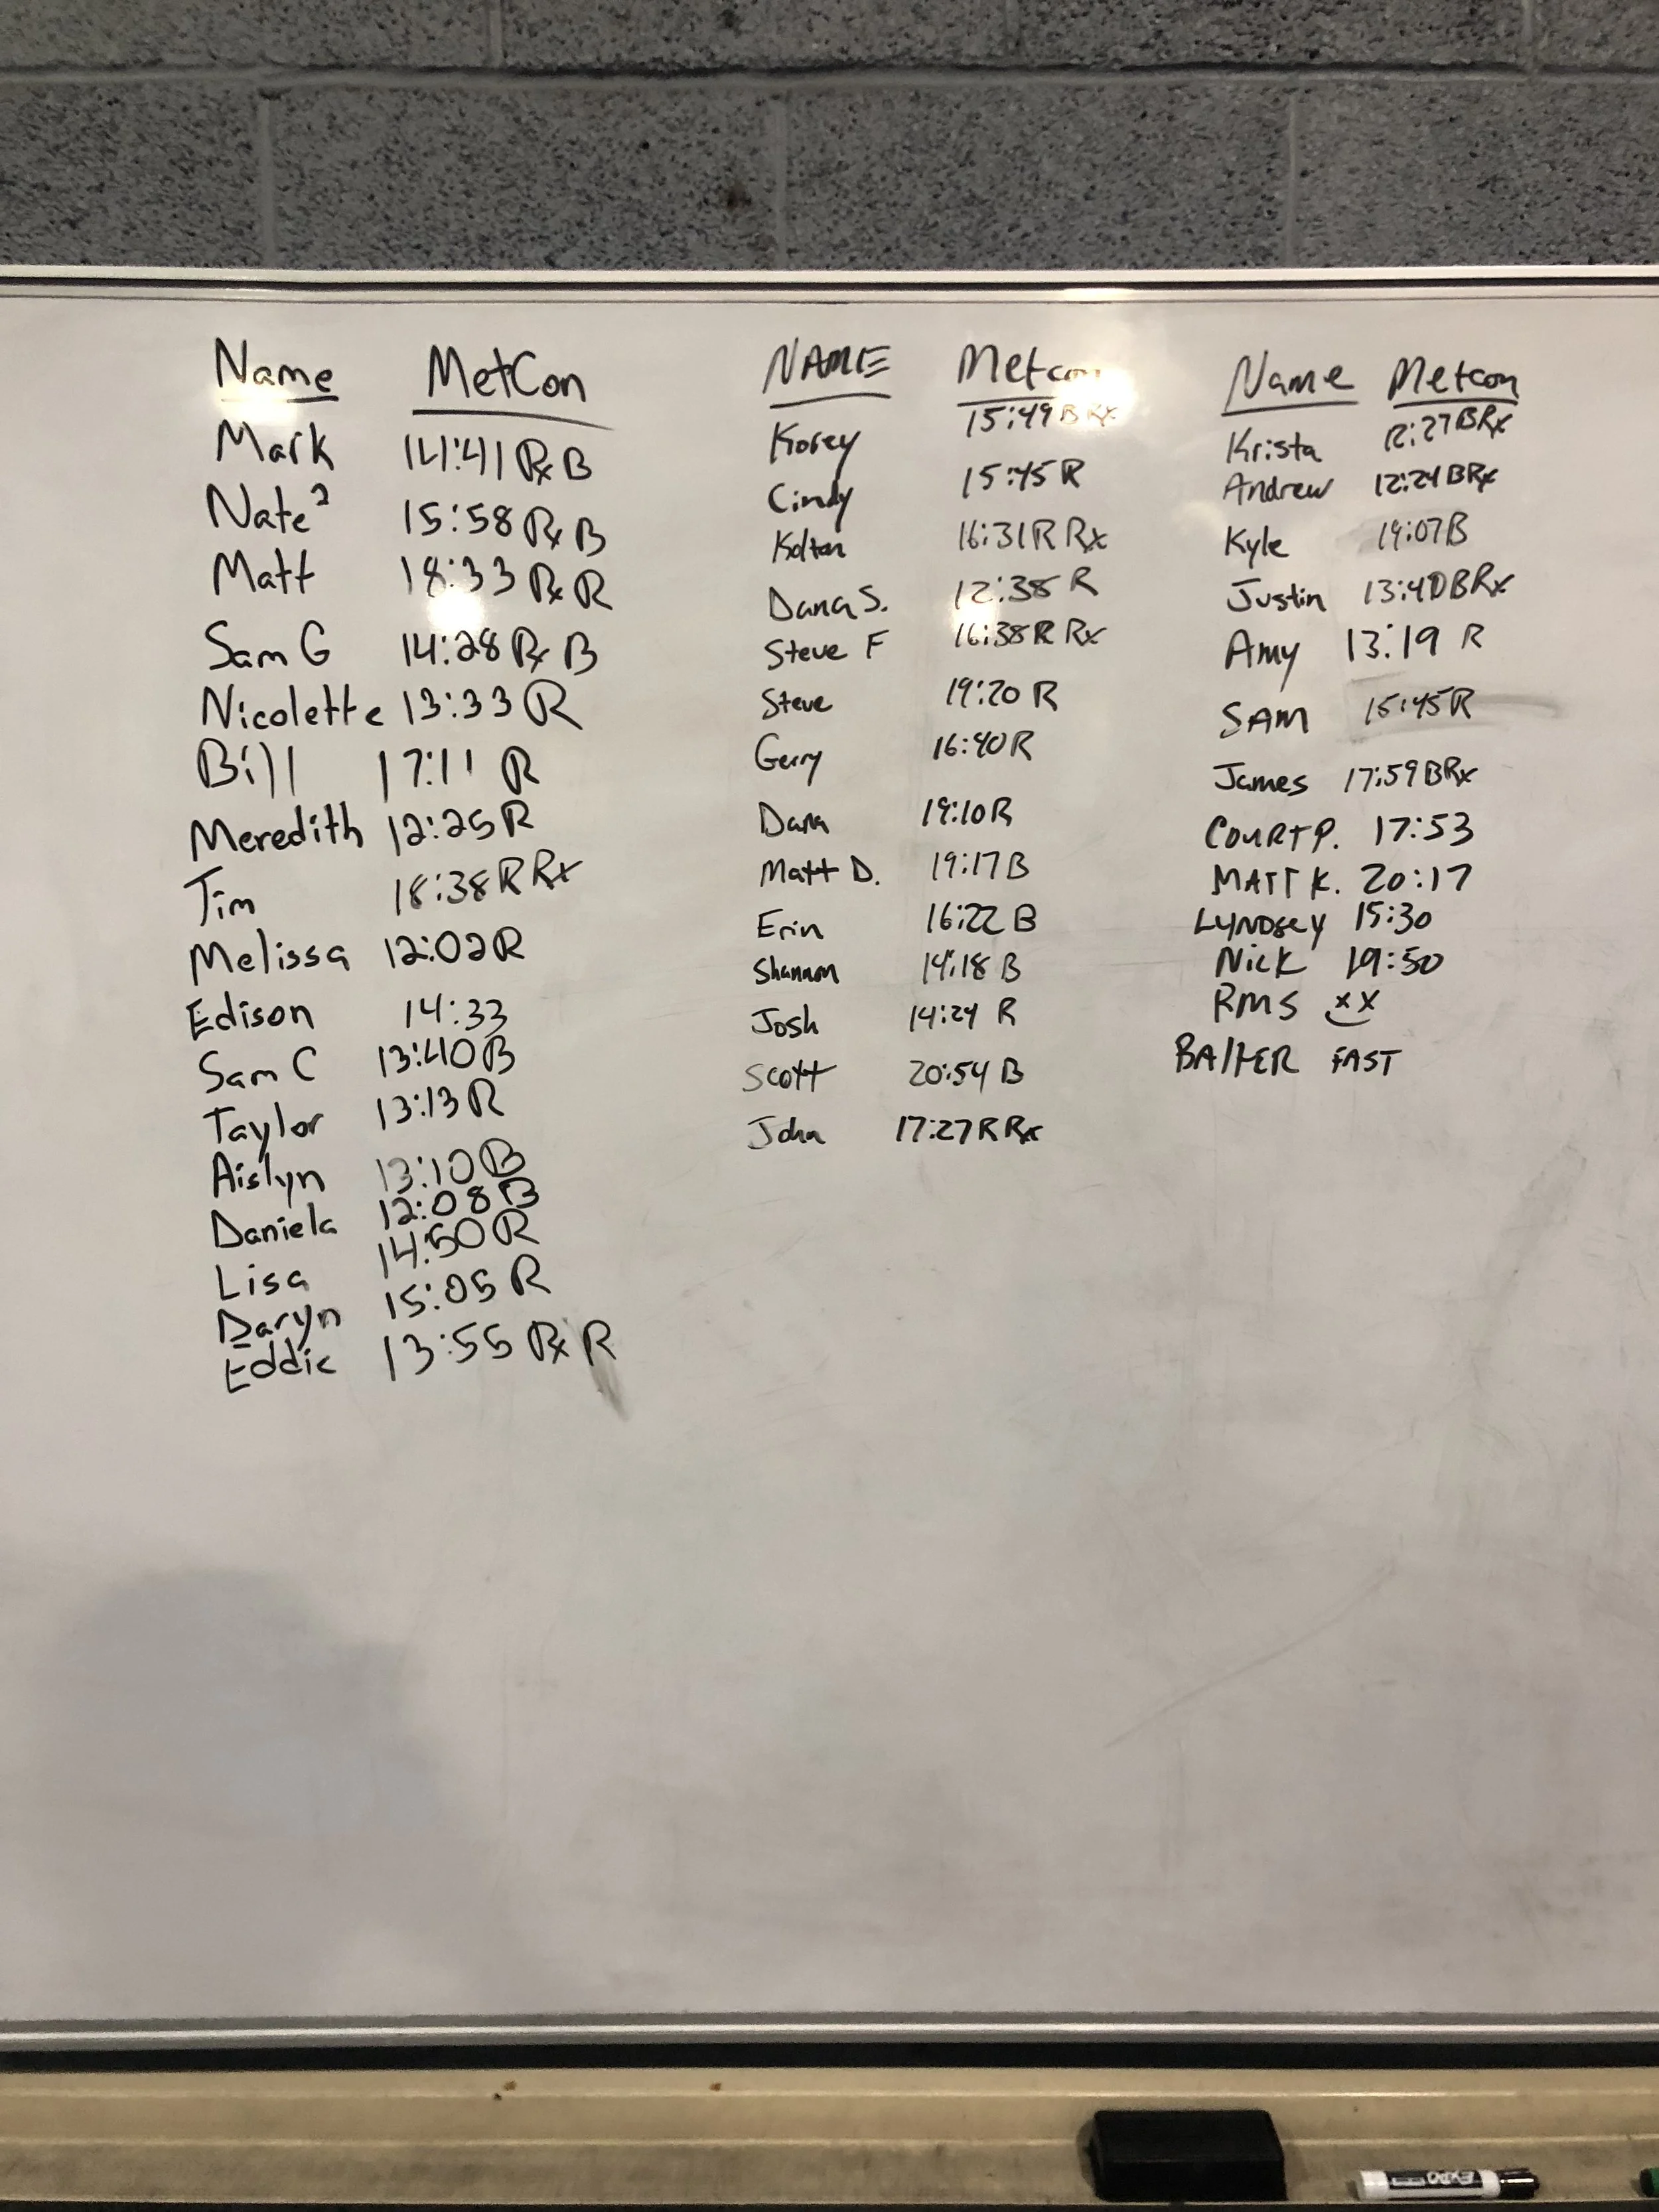 Name MetCon
Mark 14:41 Rx B
Nate² 15:58 Rx B
Matt 18:33 Rx R
Sam G 14:28 Rx B
Nicolette 13:33 R
Bill 17:11 R
Meredith 12:25 R
Tim 18:38 R Rx
Melissa 12:02 R
Edison 14:33
Sam C 13:40 B
Taylor 13:13 R
Aislyn 13:10 B
Daniela 12:08 B
Lisa 14:50 R
Daryn 15:05 R
Eddie 13:55 Rx R
NAME Metcon
Korey 15:49 B Rx
Cindy 15:45 R
Kolton 16:31 R Rx
Dana S. 12:38 R
Steve F 16:38 R Rx
Steve 19:20 R
Gerry 16:40 R
Dana 19:10 R
Matt D. 19:17 B
Erin 16:22 B
Shannon 14:18 B
Josh 14:24 R
Scott 20:54 B
John 17:27 R Rx
Name Metcon
Krista 12:27 B Rx
Andrew 12:24 B Rx
Kyle 19:07 B
Justin 13:40 B Rx
Amy 13:19 R
SAM 15:45 R
James 17:59 B Rx
COURT P. 17:53
MATT K. 20:17
LYNDSEY 15:30
NICK 19:50
RMS xx
FAST
EXPO